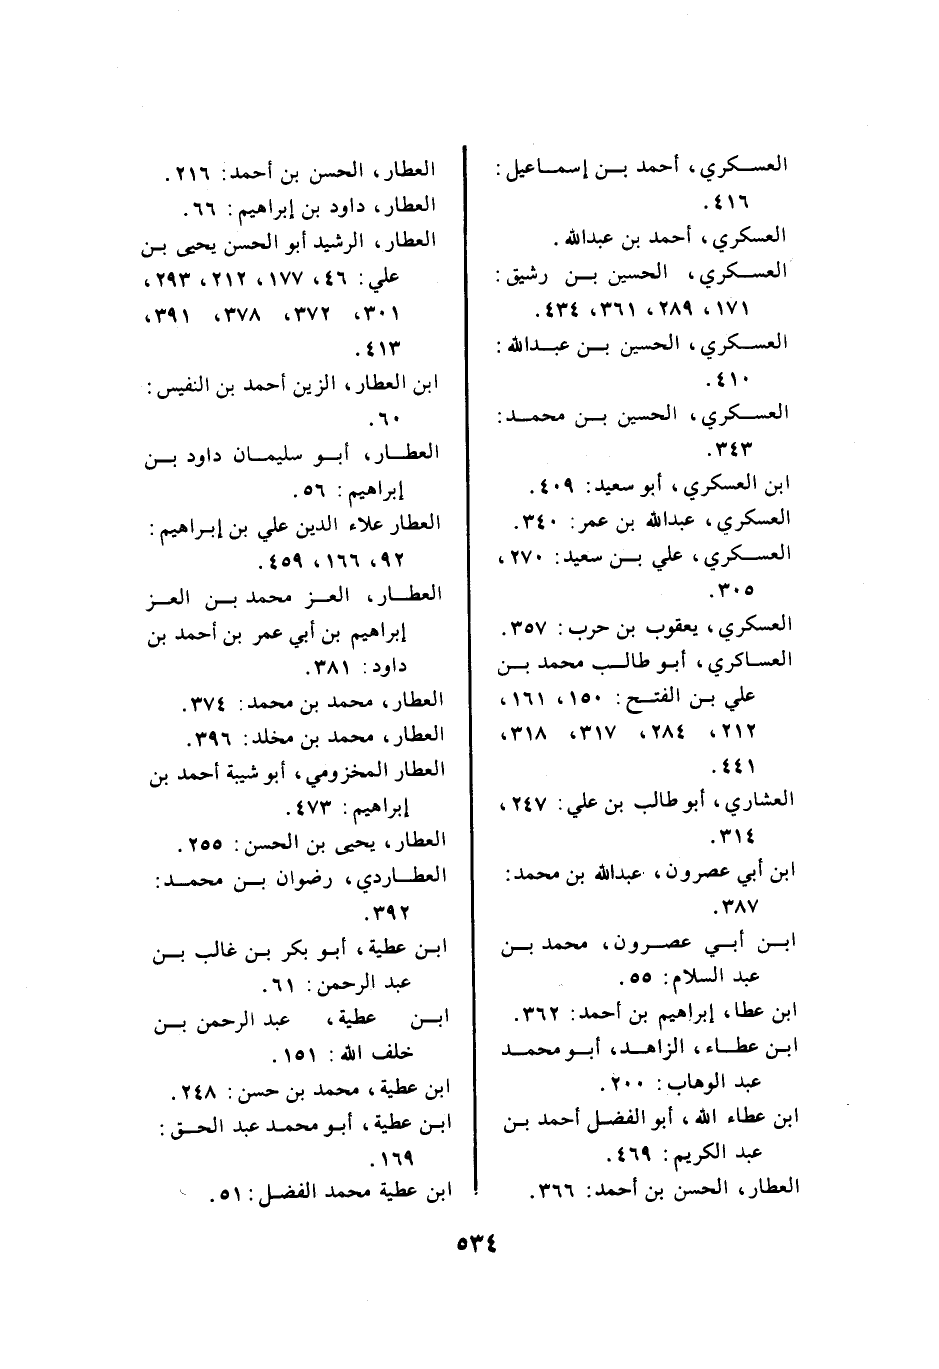 العسكري، أحمد بن إسماعيل:
٤١٦.
العسكري، أحمد بن عبدالله.
العسكري، الحسين بن رشيق:
١٧١، ٢٨٩، ٣٦١، ٤٣٤.
العسكري، الحسين بن عبدالله:
٤١٠.
العسكري، الحسين بن محمد:
٣٤٣.
ابن العسكري، أبو سعيد: ٤٠٩.
العسكري، عبدالله بن عمر: ٣٤٠.
العسكري، علي بن سعيد: ٢٧٠،
٣٠٥.
العسكري، يعقوب بن حرب: ٣٥٧.
العساكري، أبو طالب محمد بن
علي بن الفتح: ١٥٠، ١٦١،
٢١٢، ٢٨٤، ٣١٧، ٣١٨،
٤٤١.
العشاري، أبو طالب بن علي: ٢٤٧،
٣١٤.
ابن أبي عصرون، عبدالله بن محمد:
٣٨٧.
ابن أبي عصرون، محمد بن
عبد السلام: ٥٥.
ابن عطا، إبراهيم بن أحمد: ٣٦٢.
ابن عطاء، الزاهد، أبو محمد
عبد الوهاب: ٢٠٠.
ابن عطاء الله، أبو الفضل أحمد بن
عبد الكريم: ٤٦٩.
العطار، الحسن بن أحمد: ٣٦٦.
العطار، الحسن بن أحمد: ٢١٦.
العطار، داود بن إبراهيم: ٦٦.
العطار، الرشيد أبو الحسن يحيى بن
علي: ٤٦، ١٧٧، ٢١٢، ٢٩٣،
٣٠١، ٣٧٢، ٣٧٨، ٣٩١،
٤١٣.
ابن العطار، الزين أحمد بن النفيس:
٦٠.
العطار، أبو سليمان داود بن
إبراهيم: ٥٦.
العطار علاء الدين علي بن إبراهيم:
٩٢، ١٦٦، ٤٥٩.
العطار، العز محمد بن العز
إبراهيم بن أبي عمر بن أحمد بن
داود: ٣٨١.
العطار، محمد بن محمد: ٣٧٤.
العطار، محمد بن مخلد: ٣٩٦.
العطار المخزومي، أبو شيبة أحمد بن
إبراهيم: ٤٧٣.
العطار، يحيى بن الحسن: ٢٥٥.
العطاردي، رضوان بن محمد:
٣٩٢.
ابن عطية، أبو بكر بن غالب بن
عبد الرحمن: ٦١.
ابن عطية، عبد الرحمن بن
خلف الله: ١٥١.
ابن عطية، محمد بن حسن: ٢٤٨.
ابن عطية، أبو محمد عبد الحق:
١٦٩.
ابن عطية محمد الفضل: ٥١.
٥٣٤